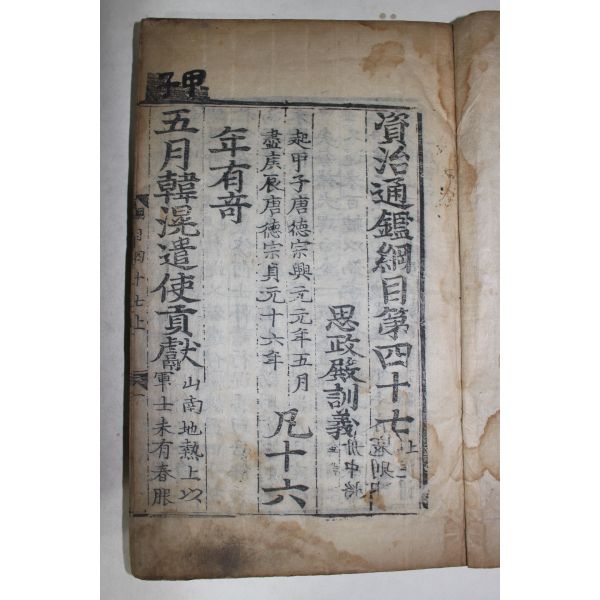 甲子
資治通鑑綱目第四十七上
思政殿訓義
起甲子唐德宗興元元年五月
盡庚辰唐德宗貞元十六年
凡十六
年有奇
五月韓滉遣使貢獻
山南地熱上以
軍士未有春服
目四十七上